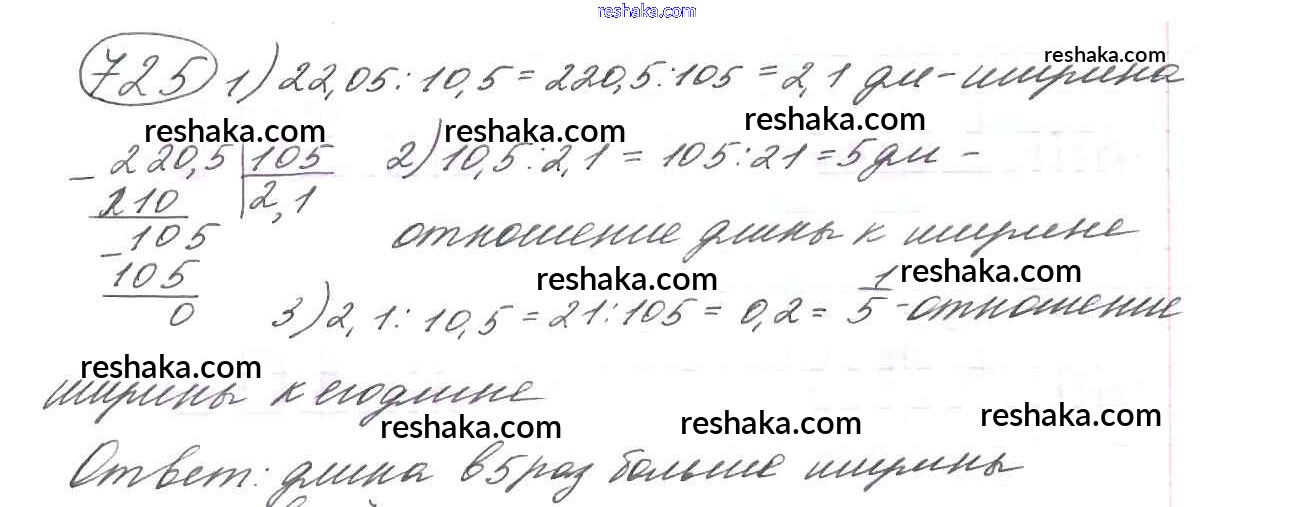 reshaka.com
reshaka.com
725 1) 22,05:10,5 = 220,5:105 = 2,1 дм - ширина
reshaka.com reshaka.com reshaka.com
- 220,5 | 105 2) 10,5:2,1 = 105:21 = 5 дм -
210 2,1
- 105 отношение длины к ширине
105 reshaka.com reshaka.com
0 3) 2,1:10,5 = 21:105 = 0,2 = 1/5 - отношение
reshaka.com
ширины к его длине
reshaka.com reshaka.com reshaka.com
Ответ: длина в 5 раз больше ширины